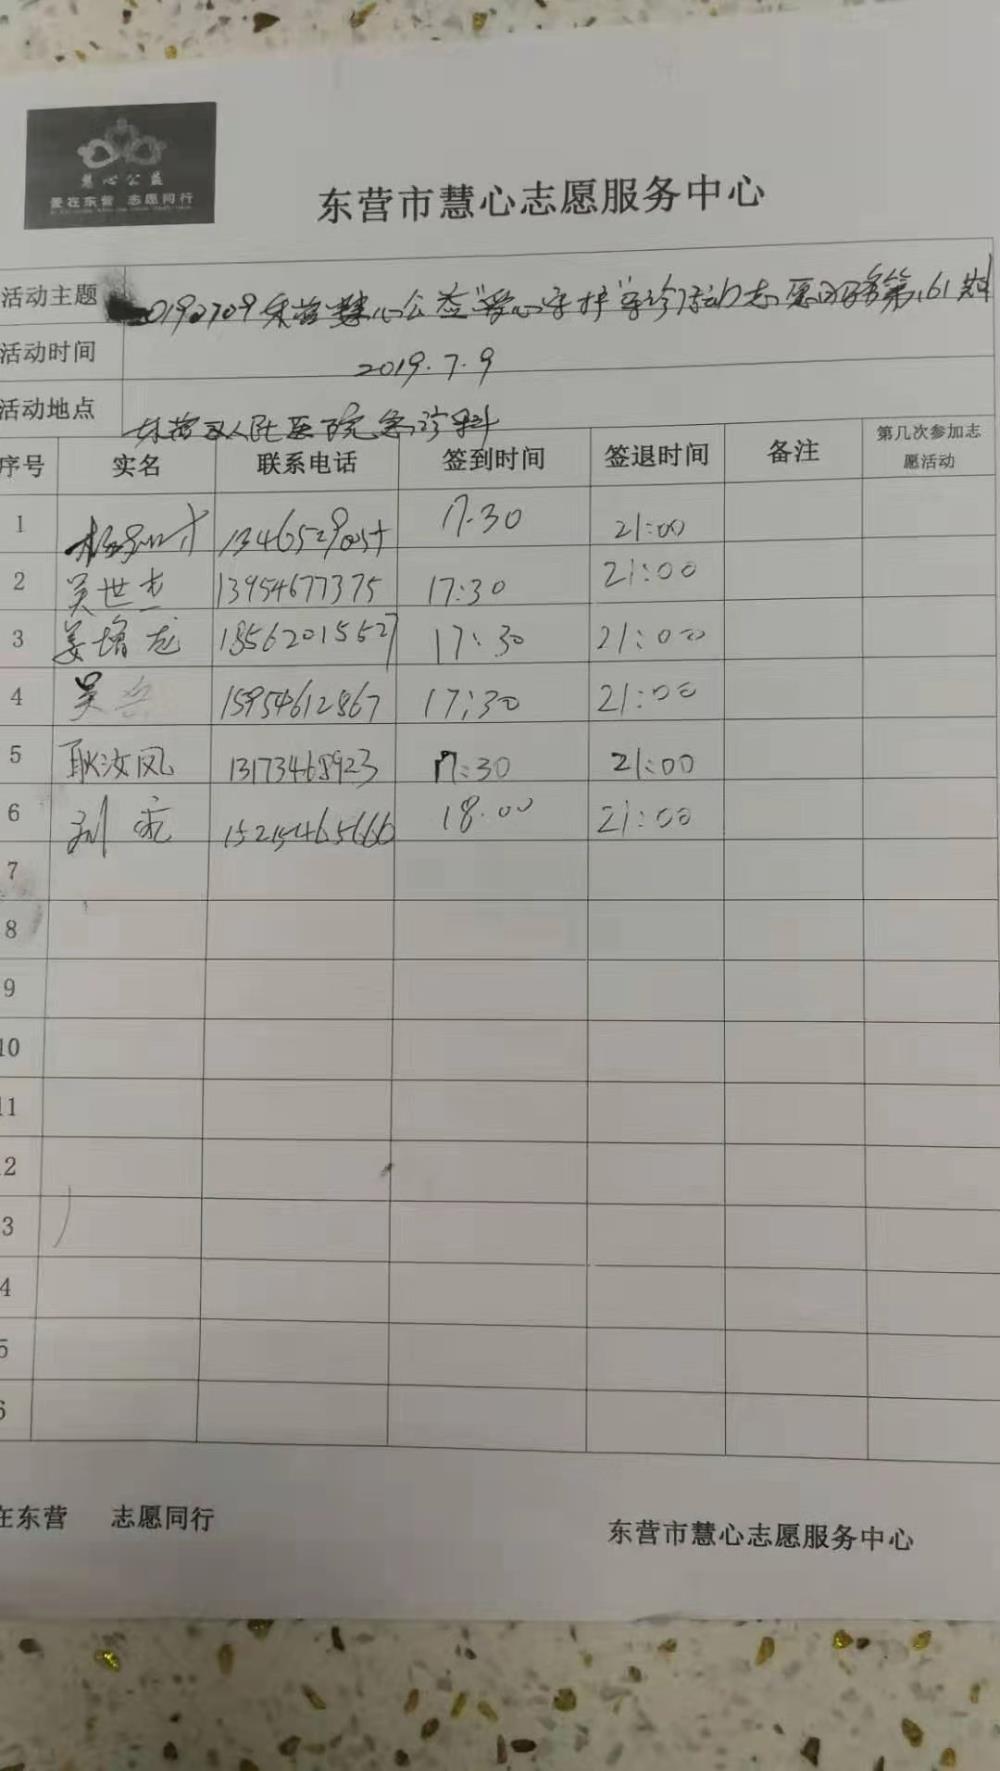 慧心公益
爱在东营 志愿同行
东营市慧心志愿服务中心
活动主题 0190709东营慧心公益"爱心守护"导诊活动志愿服务第161期
活动时间 2019.7.9
活动地点 东营区人民医院急诊科
序号 实名 联系电话 签到时间 签退时间 备注 第几次参加志愿活动
1 17.30 21:00
2 吴世杰 13954677375 17:30 21:00
3 姜增龙 18562015627 17:30 21:00
4 吴 15954612867 17:30 21:00
5 耿汝凤 13173468923 17:30 21:00
6 刘 15215465666 18.00 21:00
7
8
9
10
11
2
3
4
5
6
在东营 志愿同行
东营市慧心志愿服务中心